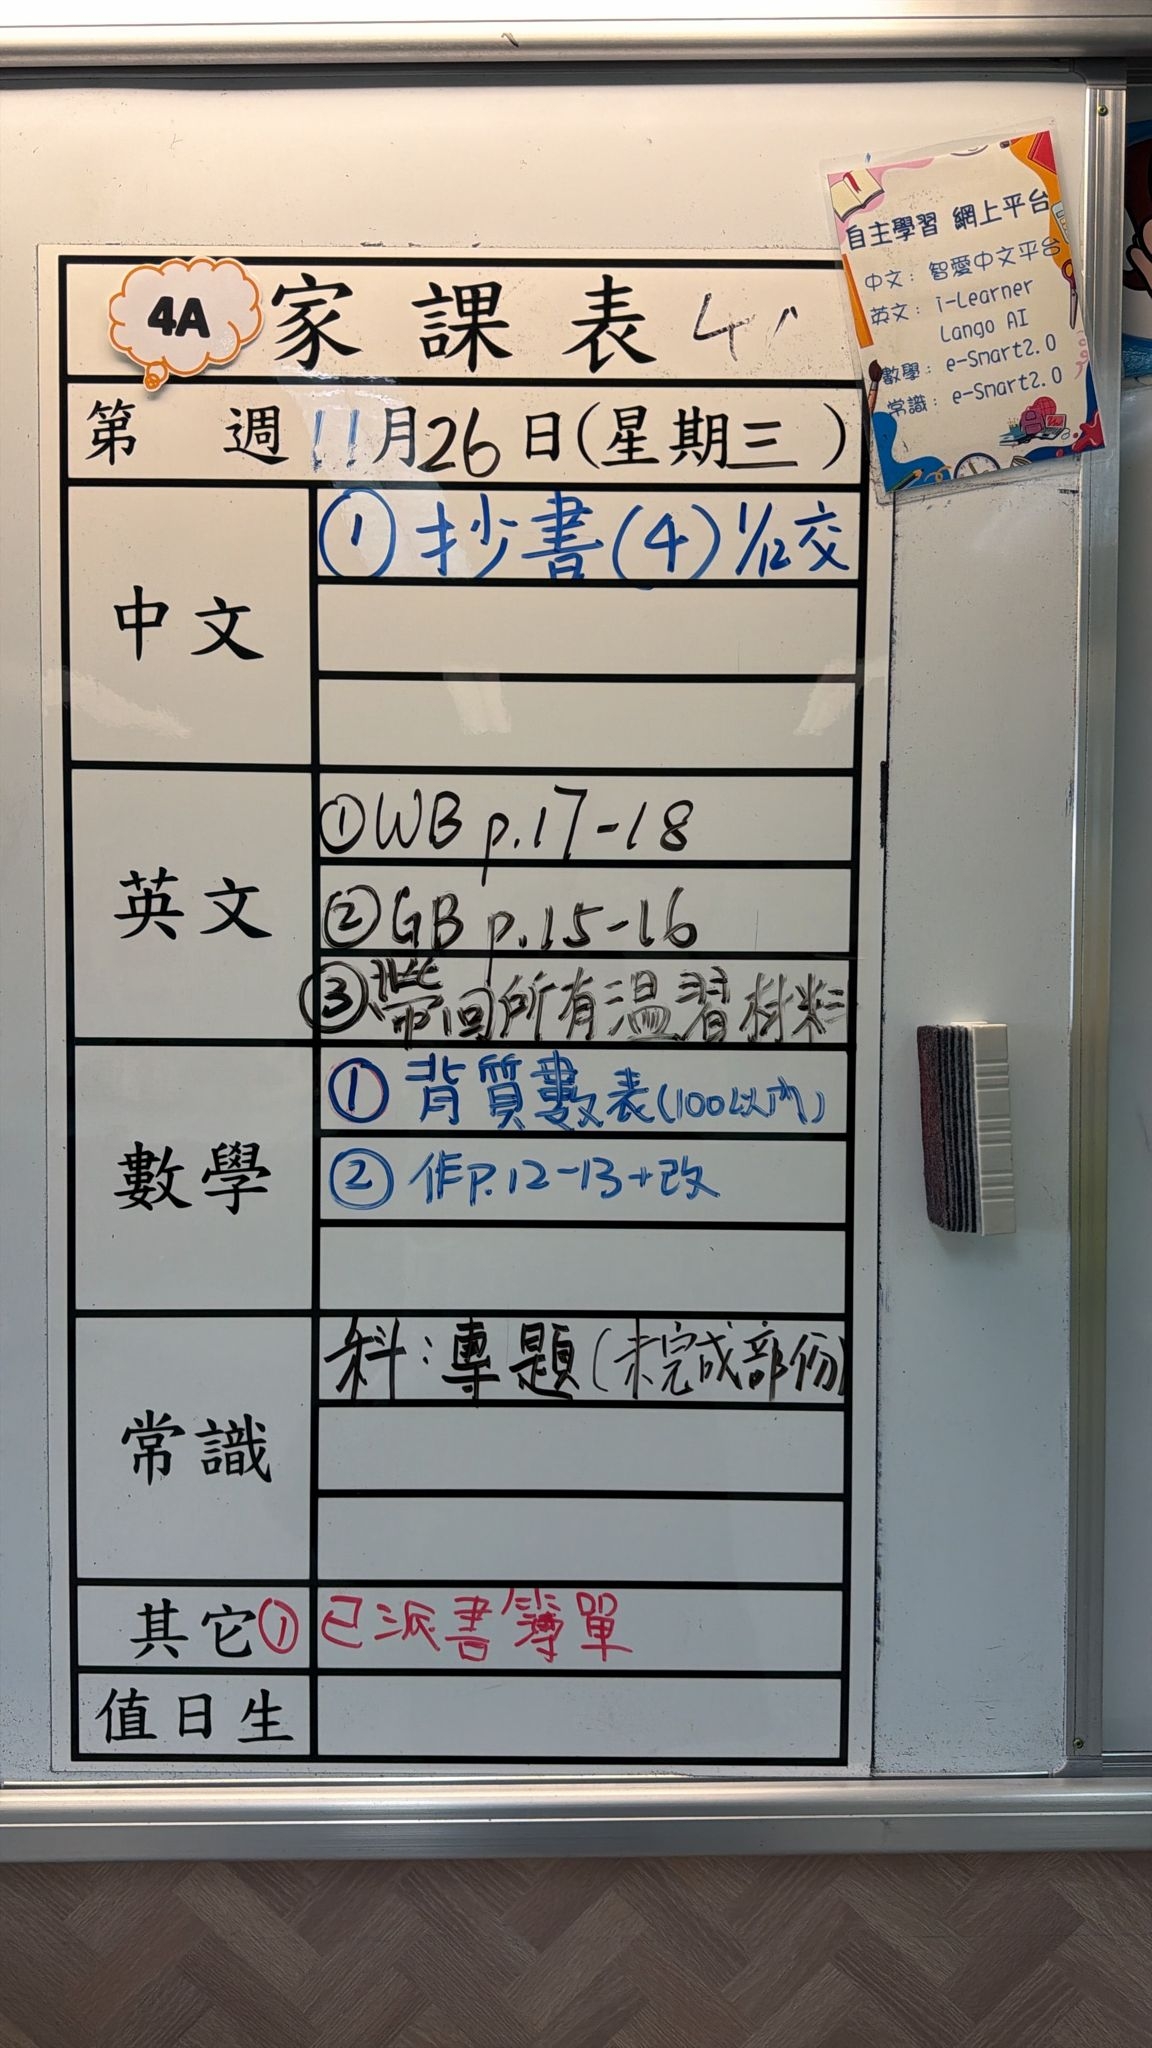 4A
家課表
自主學習 網上平台
中文：智愛中文平台
英文：i-Learner
Lango AI
數學：e-Smart2.0
常識：e-Smart2.0
第 週 11月26日(星期三)
中文
① 抄書(4) 1/12交
英文
①WB p.17-18
②GB p.15-16
③帶回所有溫習材料
數學
① 背質數表(100以內)
② 作p.12-13+改
常識
科：專題(未完成部份)
其它
① 已派書簿單
值日生